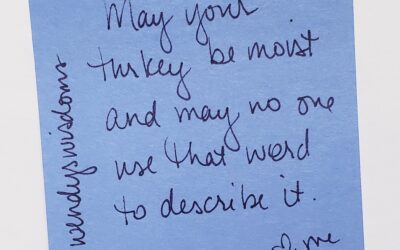 May your
turkey be moist
and may no one
use that word
to describe it.
me
wendyswisdoms